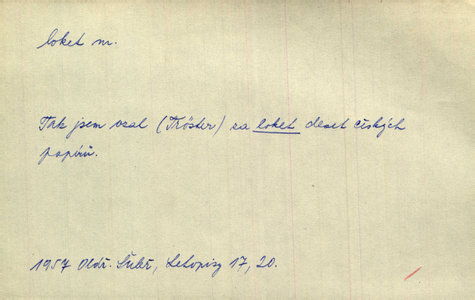 loket m.
Tak jsem vzal (Tröster) za loket deset čských
papírů.
1957 Oldř. Šubr, Letopisy 17, 20.